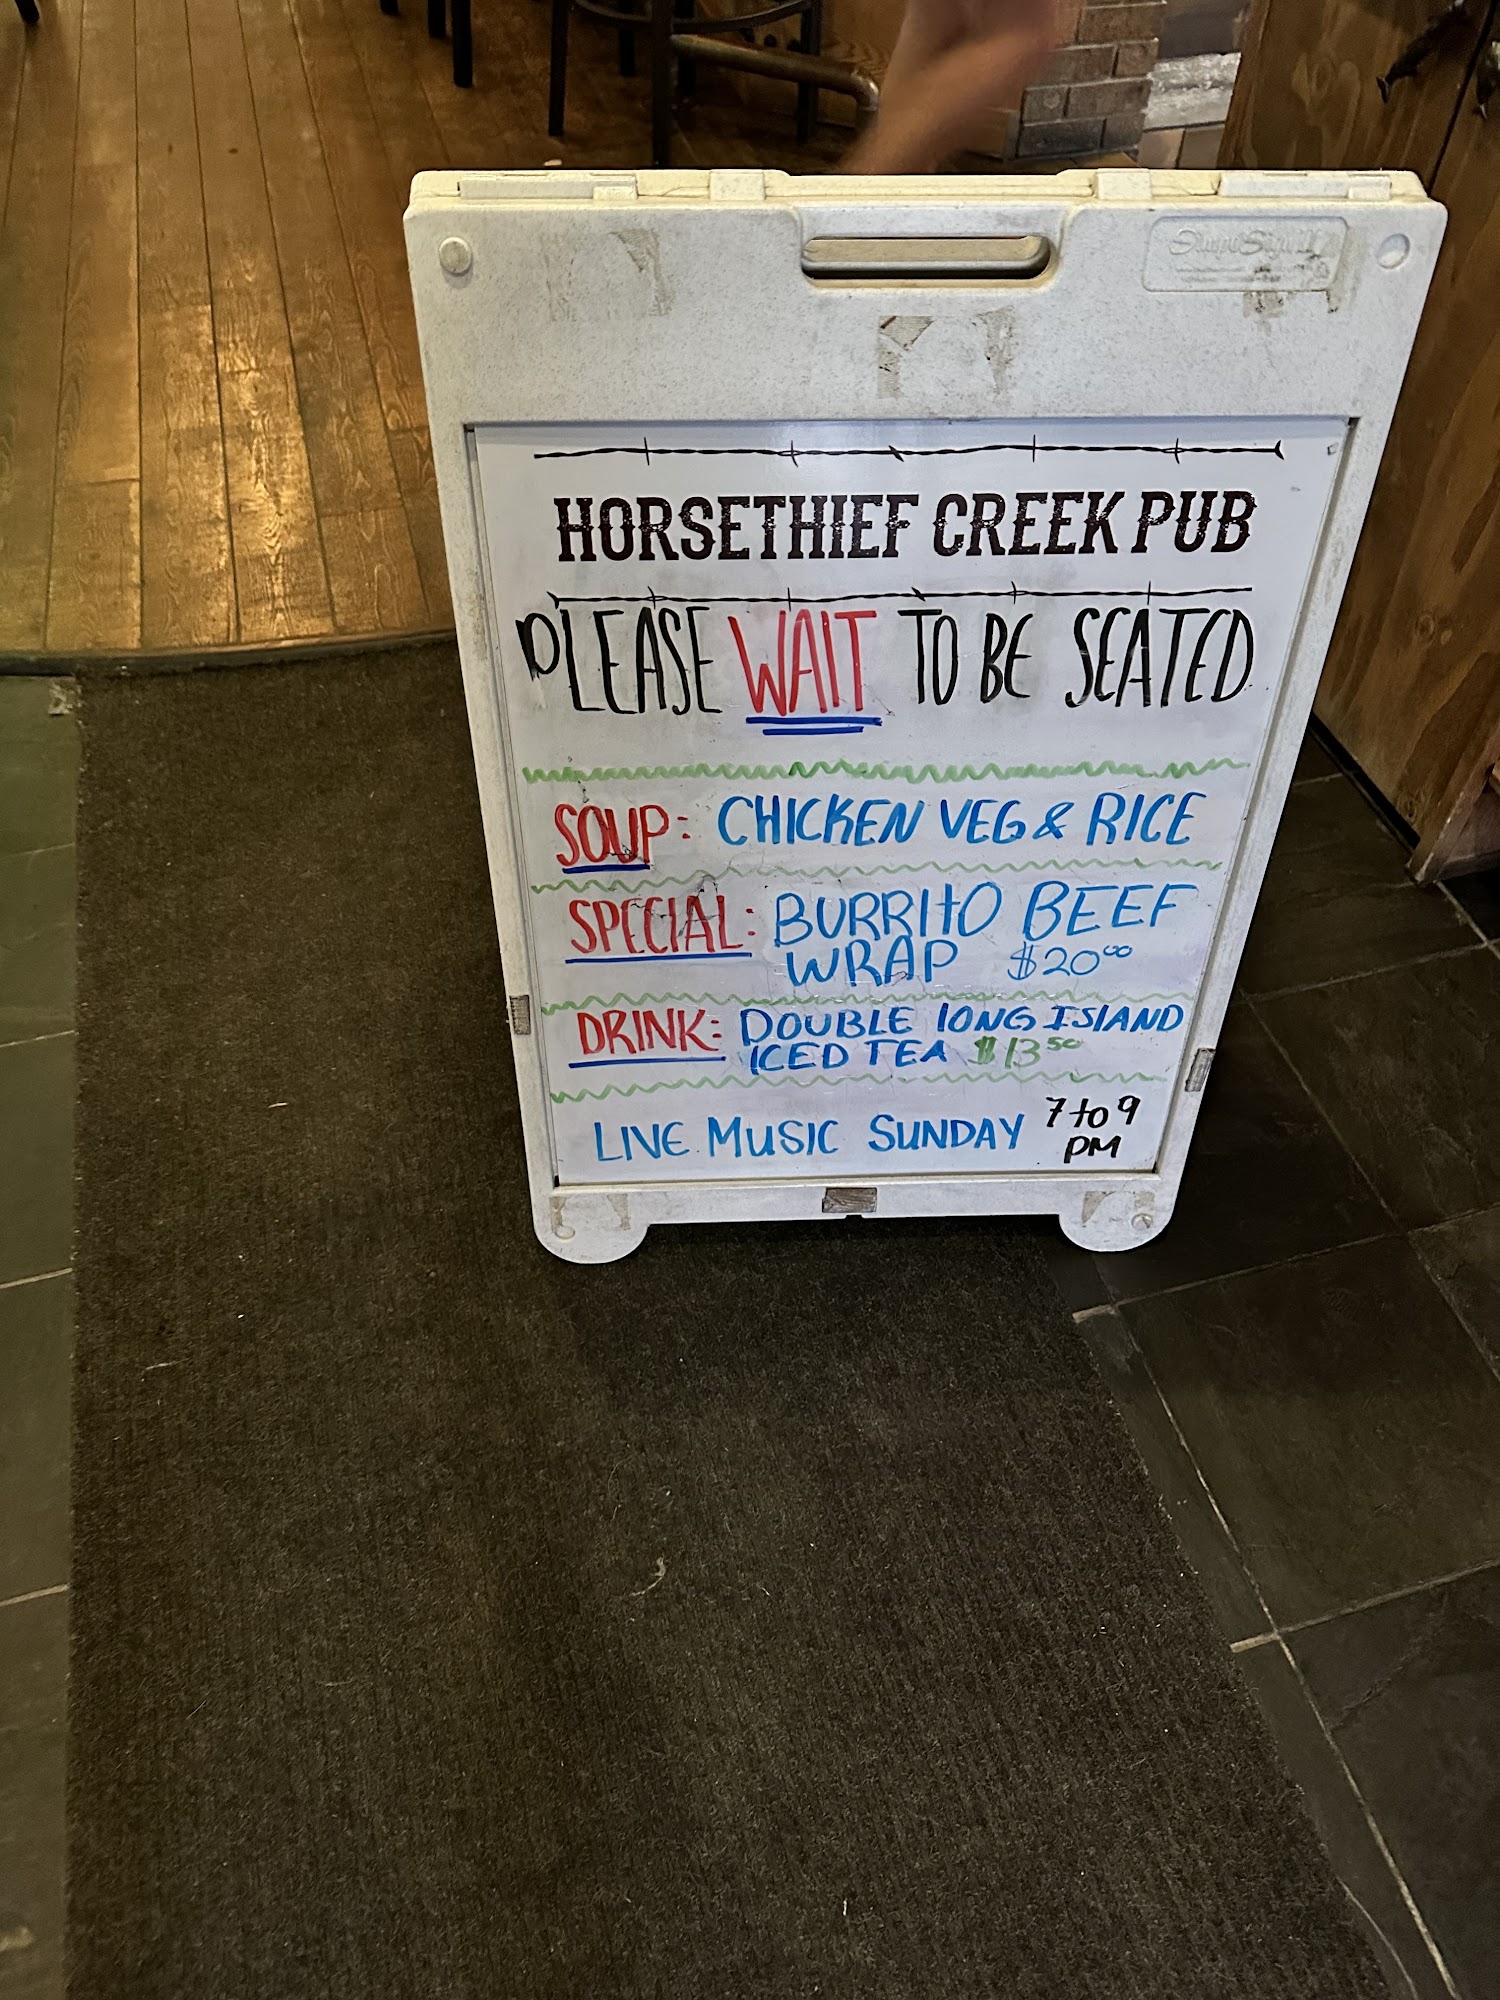 HORSETHIEF CREEK PUB
PLEASE WAIT TO BE SEATED
SOUP: CHICKEN VEG & RICE
SPECIAL: BURRITO BEEF
WRAP $20⁰⁰
DRINK: DOUBLE LONG ISLAND
ICED TEA $13⁵⁰
LIVE MUSIC SUNDAY 7 to 9
PM